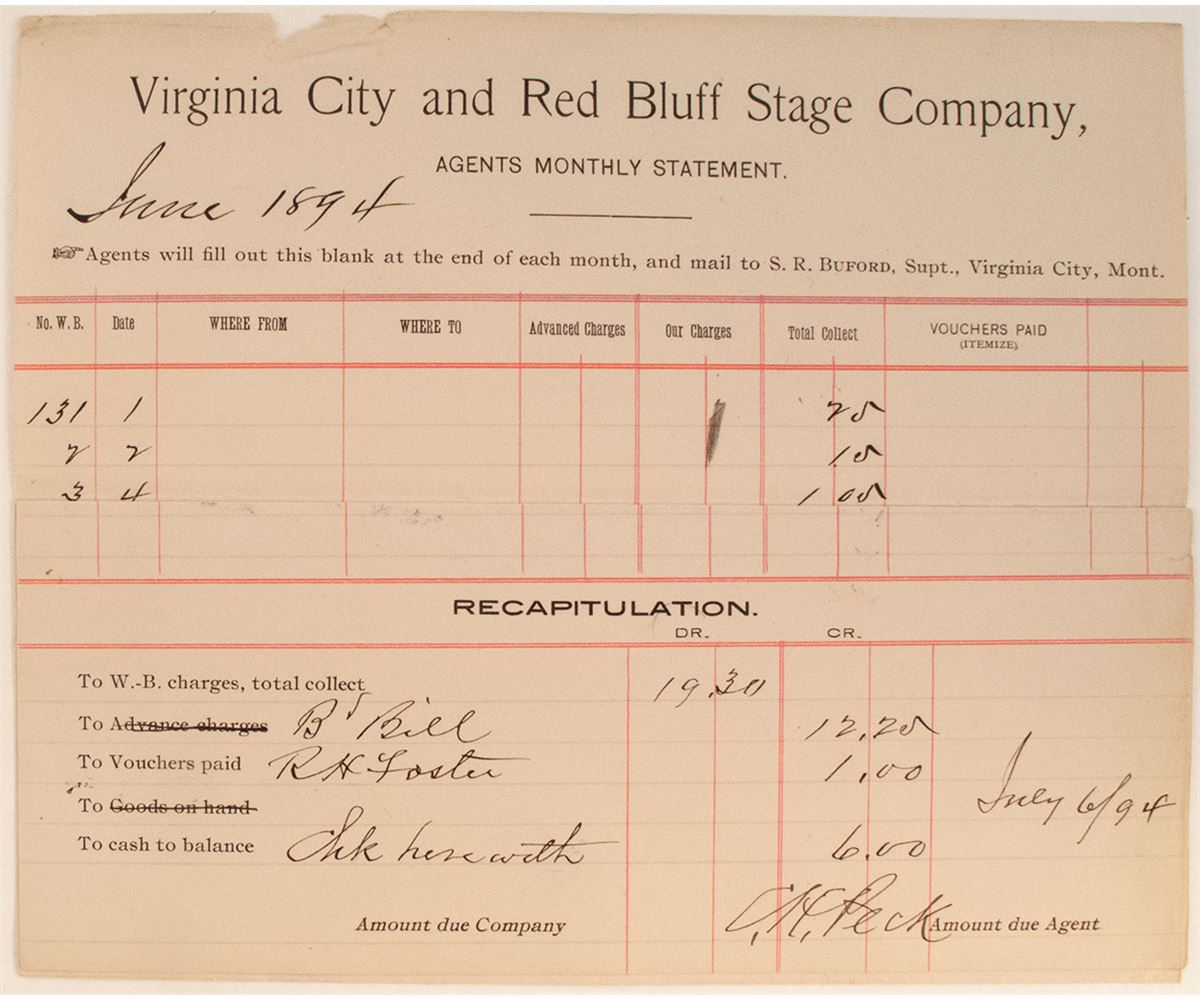 Virginia City and Red Bluff Stage Company,
AGENTS MONTHLY STATEMENT.
June 1894
☞Agents will fill out this blank at the end of each month, and mail to S. R. BUFORD, Supt., Virginia City, Mont.
No. W. B. Date WHERE FROM WHERE TO Advanced Charges Our Charges Total Collect VOUCHERS PAID
(ITEMIZE)
131 1 25
2 2 15
3 4 1 05
RECAPITULATION.
DR. CR.
To W.-B. charges, total collect 19.30
To Advance charges Bd Bill 12.25
To Vouchers paid R H Foster 1.00
To Goods on hand July 6/94
To cash to balance Chk herewith 6.00
Amount due Company C.H. Peck Amount due Agent